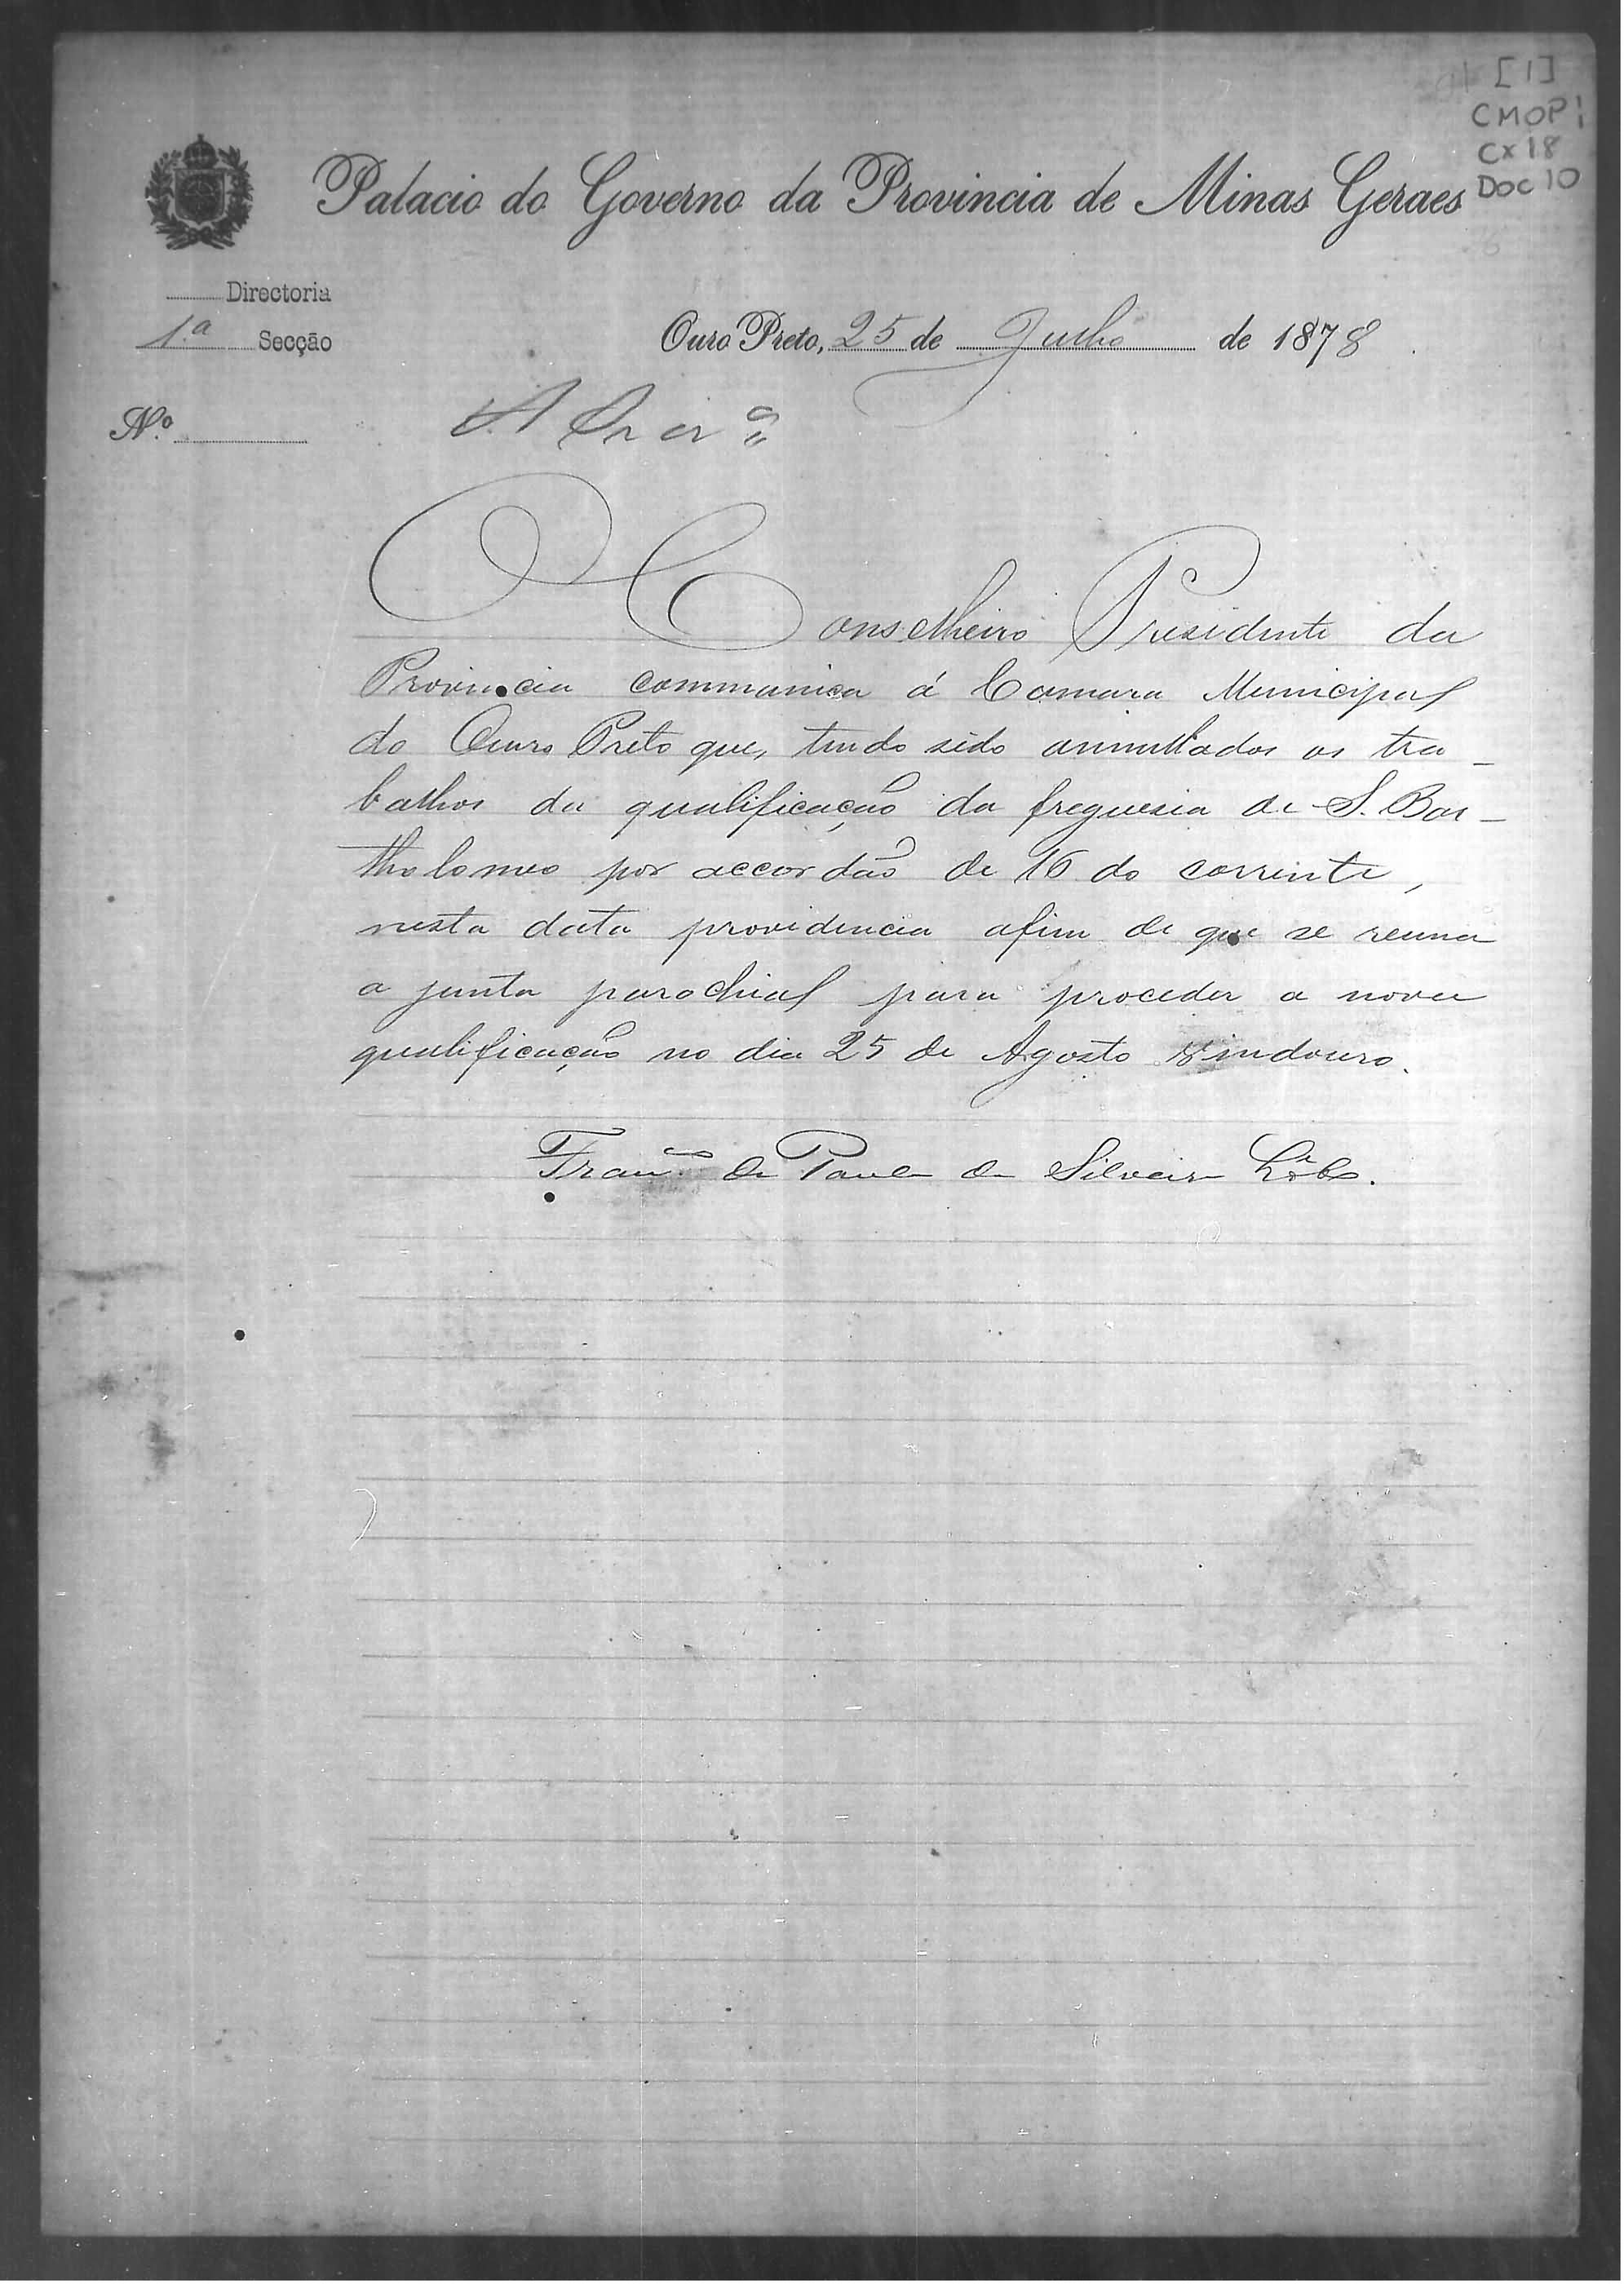 [1]
CMOP
Cx 18
DOC 10
Palacio do Governo da Provincia de Minas Geraes
Directoria
1.ª Secção
Ouro Preto, 25 de Julho de 1878
N.º
O Conselheiro Presidente da
Provincia communica á Camara Municipal
do Ouro Preto que, tendo sido annullados os tra-
balhos da qualificação da freguesia de S. Bar-
tholomeo por accordão de 16 do corrente,
nesta data providencia afim de que se reuna
a junta parochial para proceder a nova
qualificação no dia 25 de Agosto vindouro.
Franco de Paula da Silveira Lobo.